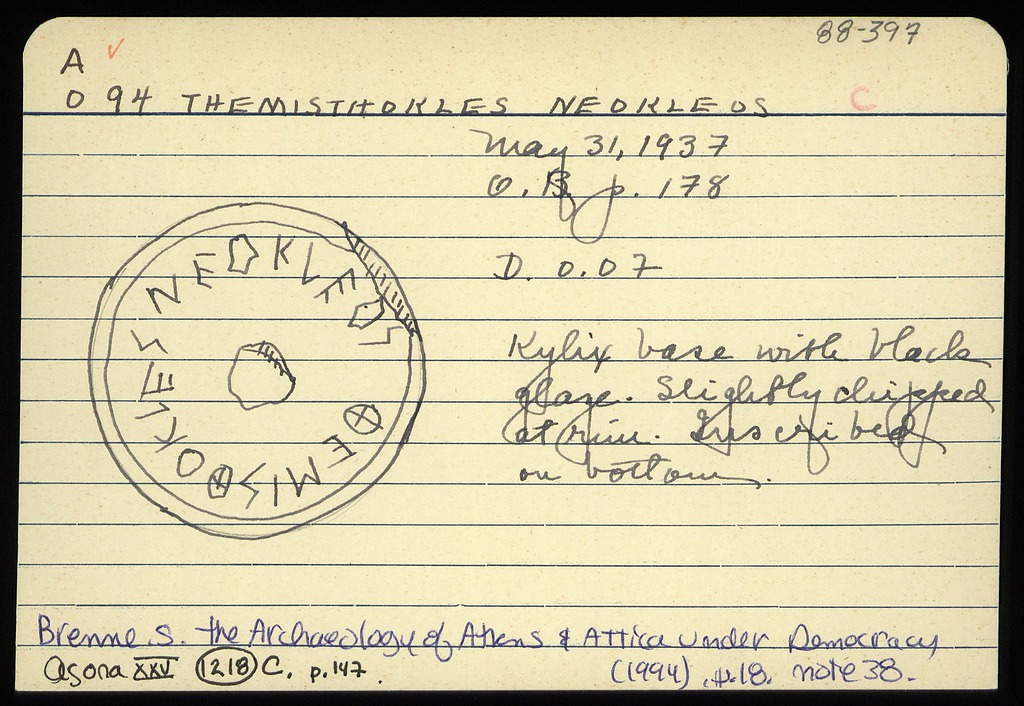 88-397
A ✓
O 94 THEMISTHOKLES NEOKLEOS C
May 31, 1937
O.B. p. 178
D. 0.07
Kylix base with black
glaze. Slightly chipped
at rim. Inscribed
on bottom.
⊗EMIS⊗OKLES NEOKLEOS
Brenne S. The Archaeology of Athens & Attica under Democracy
(1994) p.18. note 38.
Agora XXV 1218 C. p.147.